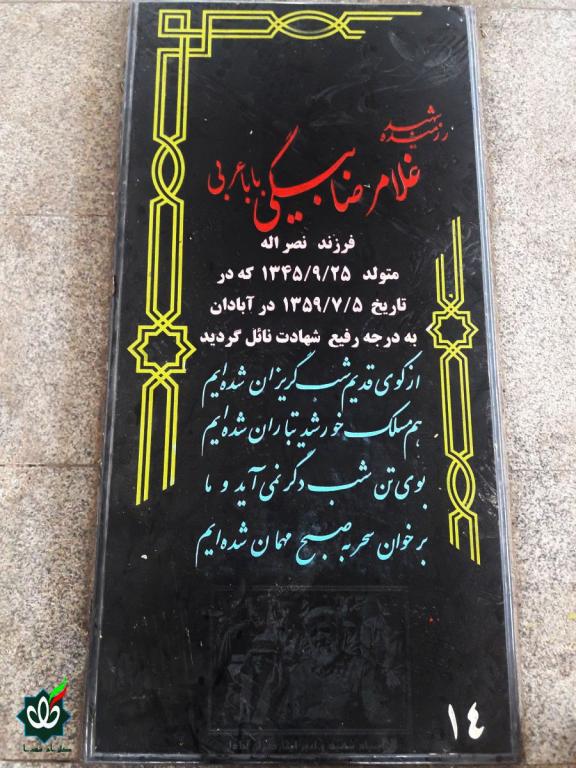 شهید
رزمنده
غلامرضا بیگی باباعربی
فرزند نصراله
متولد ۱۳۴۵/۹/۲۵ که در
تاریخ ۱۳۵۹/۷/۵ در آبادان
به درجه رفیع شهادت نائل گردید
از کوی قدیم شب گریزان شده‌ایم
هم مسلک خورشید تباران شده‌ایم
بوی تن شب دگر نمی آید و ما
بر خوان سحر به صبح مهمان شده‌ایم
۱۴